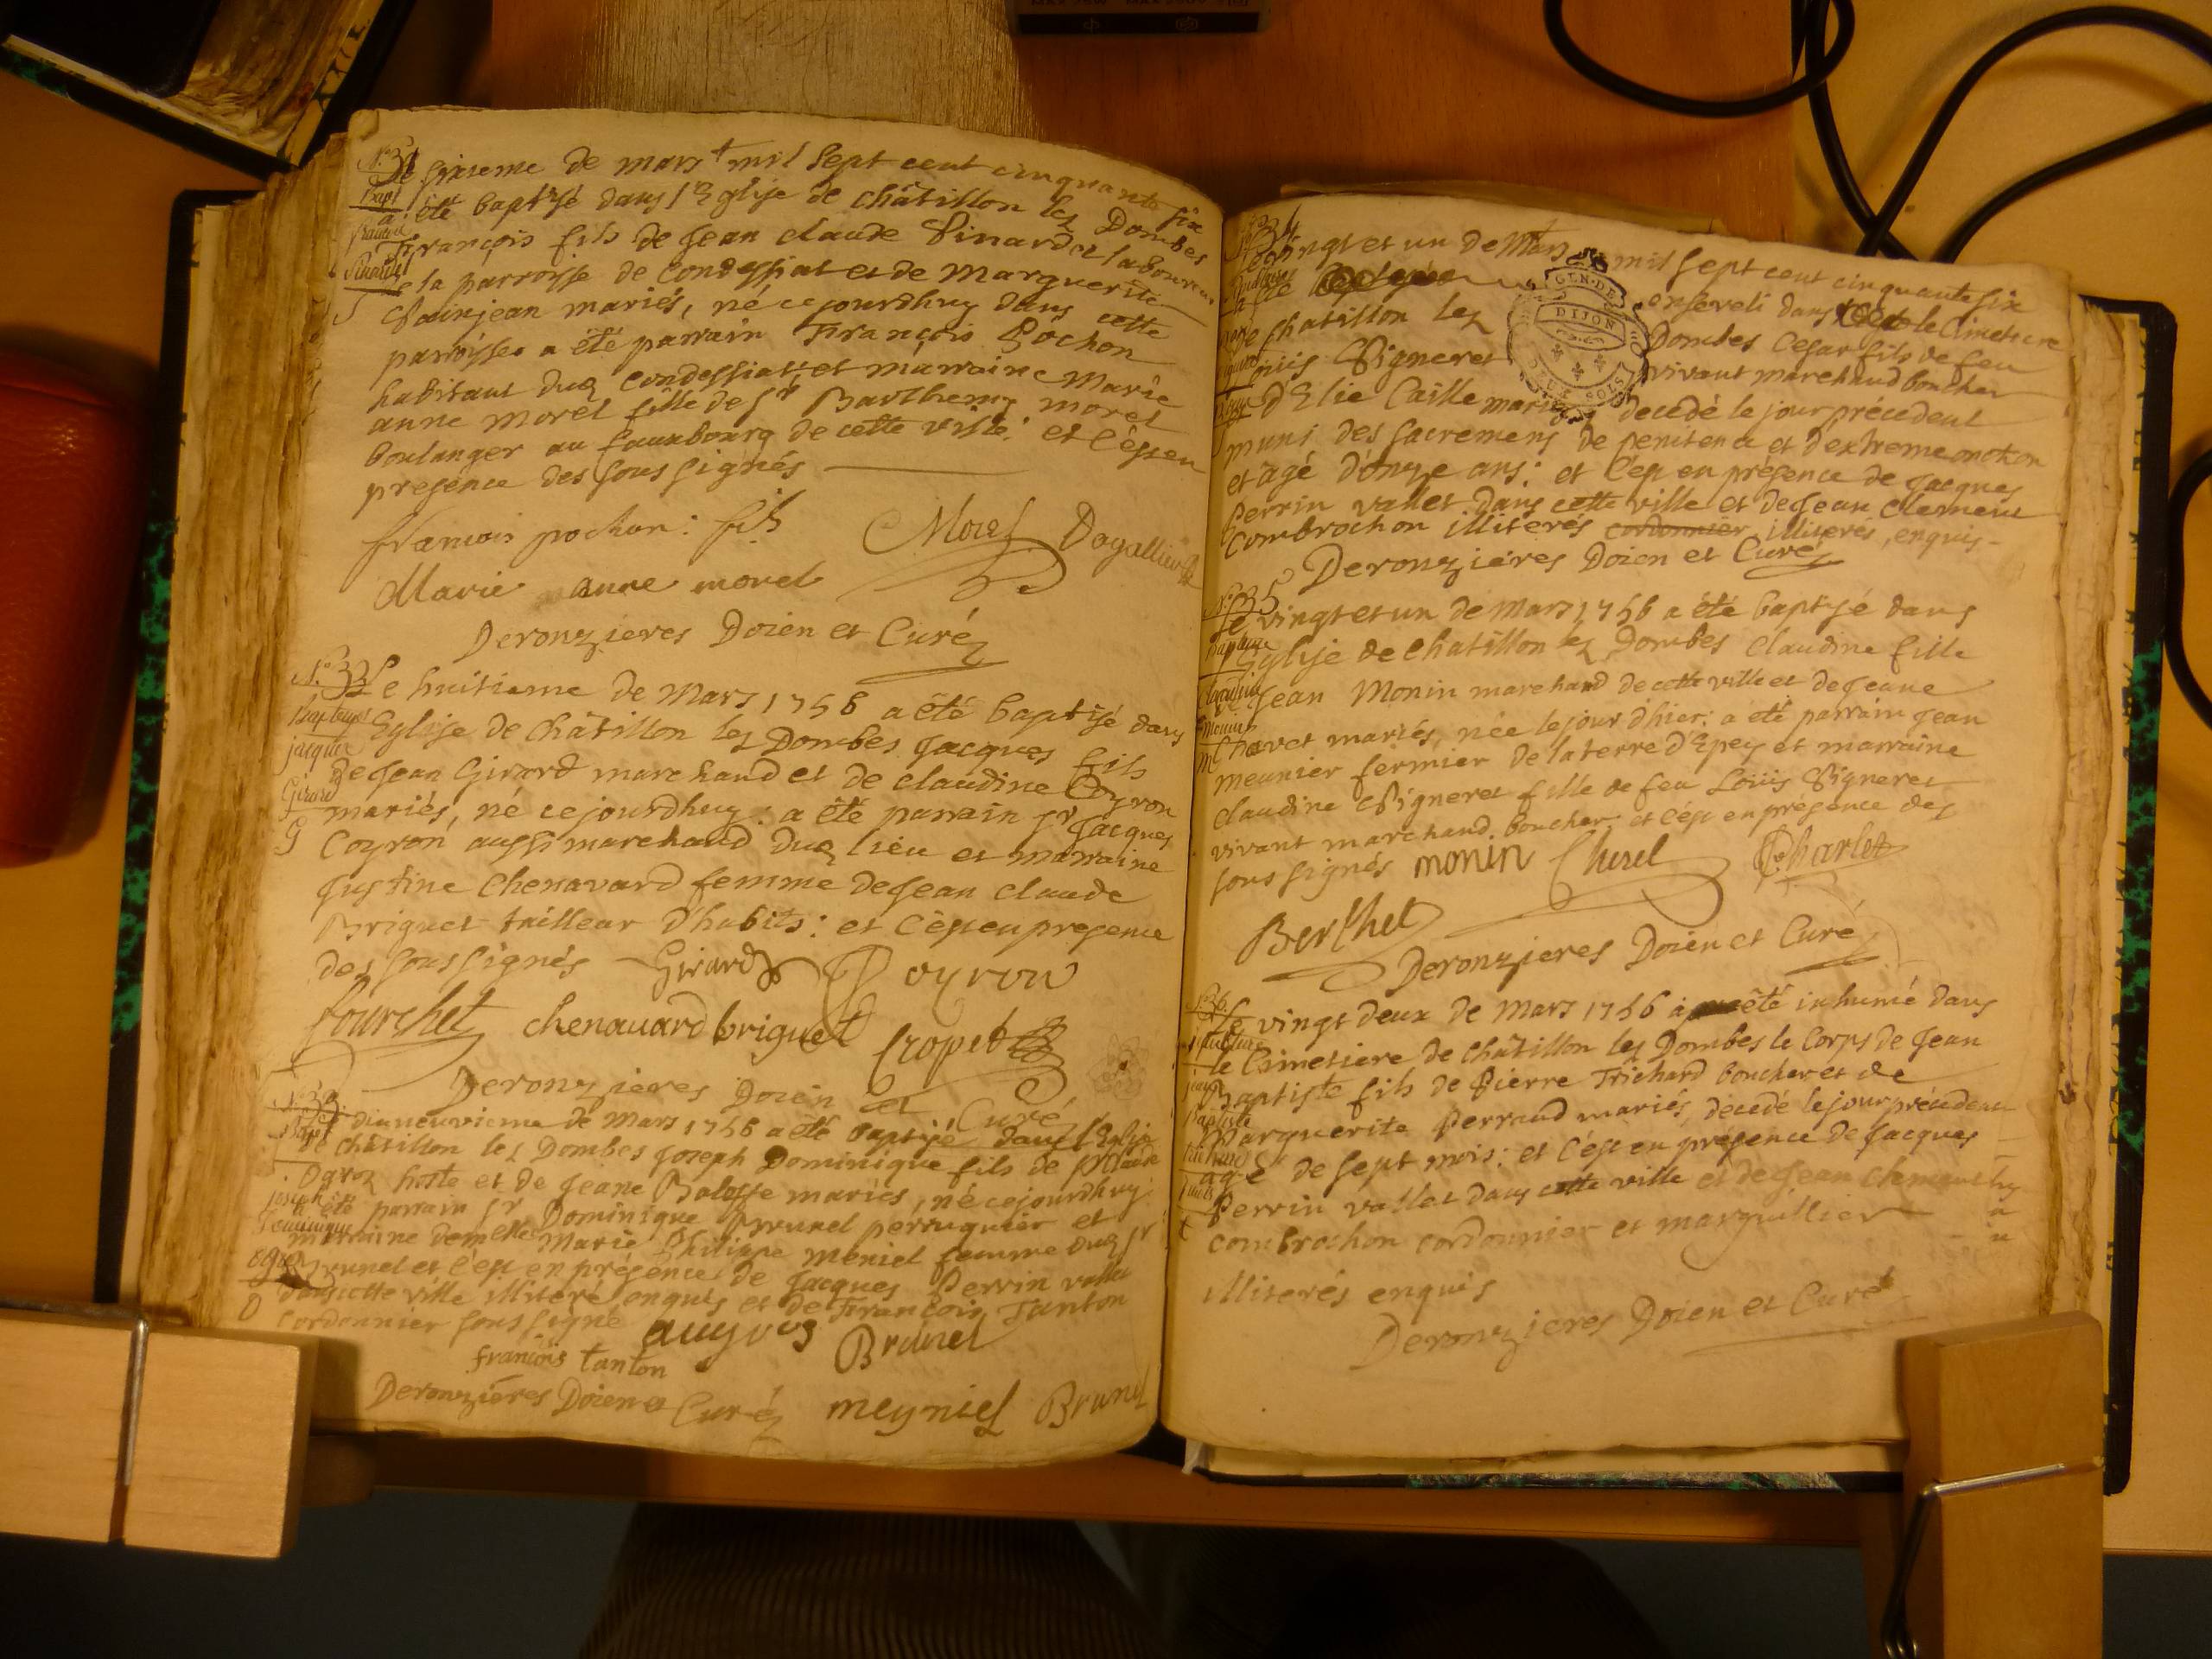 N.º 31
Le sixieme de mars mil sept cent cinquante six
Bapt
a été baptisé dans l'Eglise de châtillon les Dombes
françois
François fils de Jean claude Pinardet laboureur
Pinardet
de la parroisse de condessiat et de Marguerite
Vainjean mariés, né ce jourdhuy dans cette
parroisse a été parrain François Pochon
habitant dud condessiat et marraine Marie
anne morel fille de sr Barthemy morel
boulanger au fauxbourg de cette ville: et c'est en
presence des soussignés
françois pochon: fils Morel
Marie anne morel
Deronzieres Doien et Curé
N.º 32
Le huitieme de Mars 1756 a été baptisé dans
Baptesme
l'Eglise de Châtillon les Dombes Jacques fils
jacque
de Jean Girard marchand et de claudine Coyron
Girard
mariés, né ce jourdhuy: a été parrain sr Jacques
G
Coyron aussi marchand dud lieu et marraine
Justine Chenavard femme de Jean claude
Briguet tailleur d'habits: et c'est en presence
des soussignés Girard Coyron
fourchet chenavard briguet Cropet
Deronzieres Doien et Curé
N.º 33
Le dixneuvieme de Mars 1756 a été baptisé dans l'Eglise
Bapt
de châtillon les Dombes Joseph Dominique fils de
Ogroz hoste et de Jeane mariés, né ce jourdhuy:
joseph
a été parrain sr Dominique Brunel perruquier et
Dominique
marraine demelle Marie Philippe meniel femme dud sr
ogroz
Brunel et c'est en présence de Jacques Perrin vallet
O
dans cette ville illiteré enquis et de François Tanton
cordonnier soussigné Brunel
françois tanton
Deronzières Doien et Curé meyniel Brunel
N.º 34
Le vingt et un de Mars mil sept cent cinquante six
a été enseveli dans le Cimetiere
de Chatillon les Dombes Cesar fils de feu
Loüis Vigneret vivant marchand boucher
et d'Elie Caille mariés decédé le jour précedent
GEN. DE
DIJON
DEUX SOLS
muni des sacremens de penitence et d'extreme onction
et agé d'onze ans: et c'est en présence de Jacques
Perrin vallet dans cette ville et de Jean Clement
Combrochon illiterés cordonnier illiterés, enquis
Deronzières Doien et Curé
N.º 35
Le vingt et un de Mars 1756 a été baptisé dans
Baptesme
l'Eglise de chatillon les Dombes Claudine fille
Claudine
de Jean Monin marchand de cette ville et de Jeane
Monin
Chavet mariés, née le jour d'hier: a été parrain Jean
M
meunier fermier de la terre d'Epey et marraine
claudine Vigneret fille de feu Loüis Vigneret
vivant marchand boucher, et c'est en présence des
soussignés monin Charlet
Berthet
Deronzieres Doien et Curé
N.º 36
Le vingt deux de Mars 1756 a été inhumé dans
sepulture
le Cimetiere de Châtillon les Dombes le Corps de Jean
jean
Baptiste fils de Pierre Trichard boucher et de
baptiste
Marguerite Perraud mariés, decedé le jour précédent
trichard
agé de sept mois: et c'est en présence de Jacques
Perrin vallet dans cette ville et de Jean Clement
t
combrochon cordonnier et marguillier
illiterés enquis
Deronzieres Doien et Curé